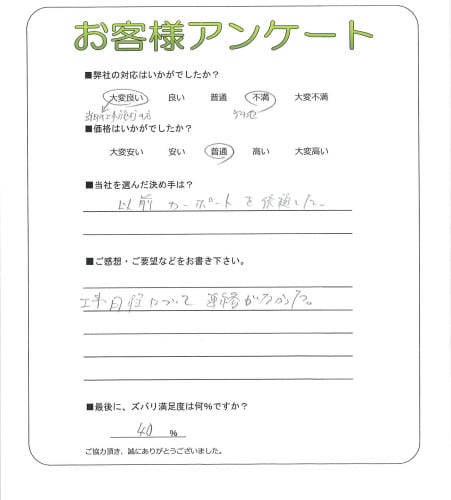 お客様アンケート
■弊社の対応はいかがでしたか?
大変良い 良い 普通 不満 大変不満
■価格はいかがでしたか?
大変安い 安い 普通 高い 大変高い
■当社を選んだ決め手は?
以前 カーポートを依頼した。
■ご感想・ご要望などをお書き下さい。
工事日程について 連絡がなかった。
■最後に、ズバリ満足度は何%ですか?
40 %
ご協力頂き、誠にありがとうございました。